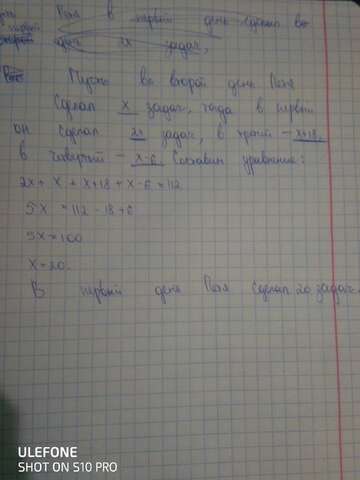 Поля в первый день сделал во
первый
2х задач,
Пусть во второй день Поля
сделал х задач, тогда в первый
он сделал 2х задач, в третий - х+18,
в четвертый - х-6 Составим уравнение:
2х + х + х+18 + х-6 = 112
5х = 112 - 18 + 6
5х = 100
х = 20.
В первый день Поля сделал 20 задач.
ULEFONE
SHOT ON S10 PRO